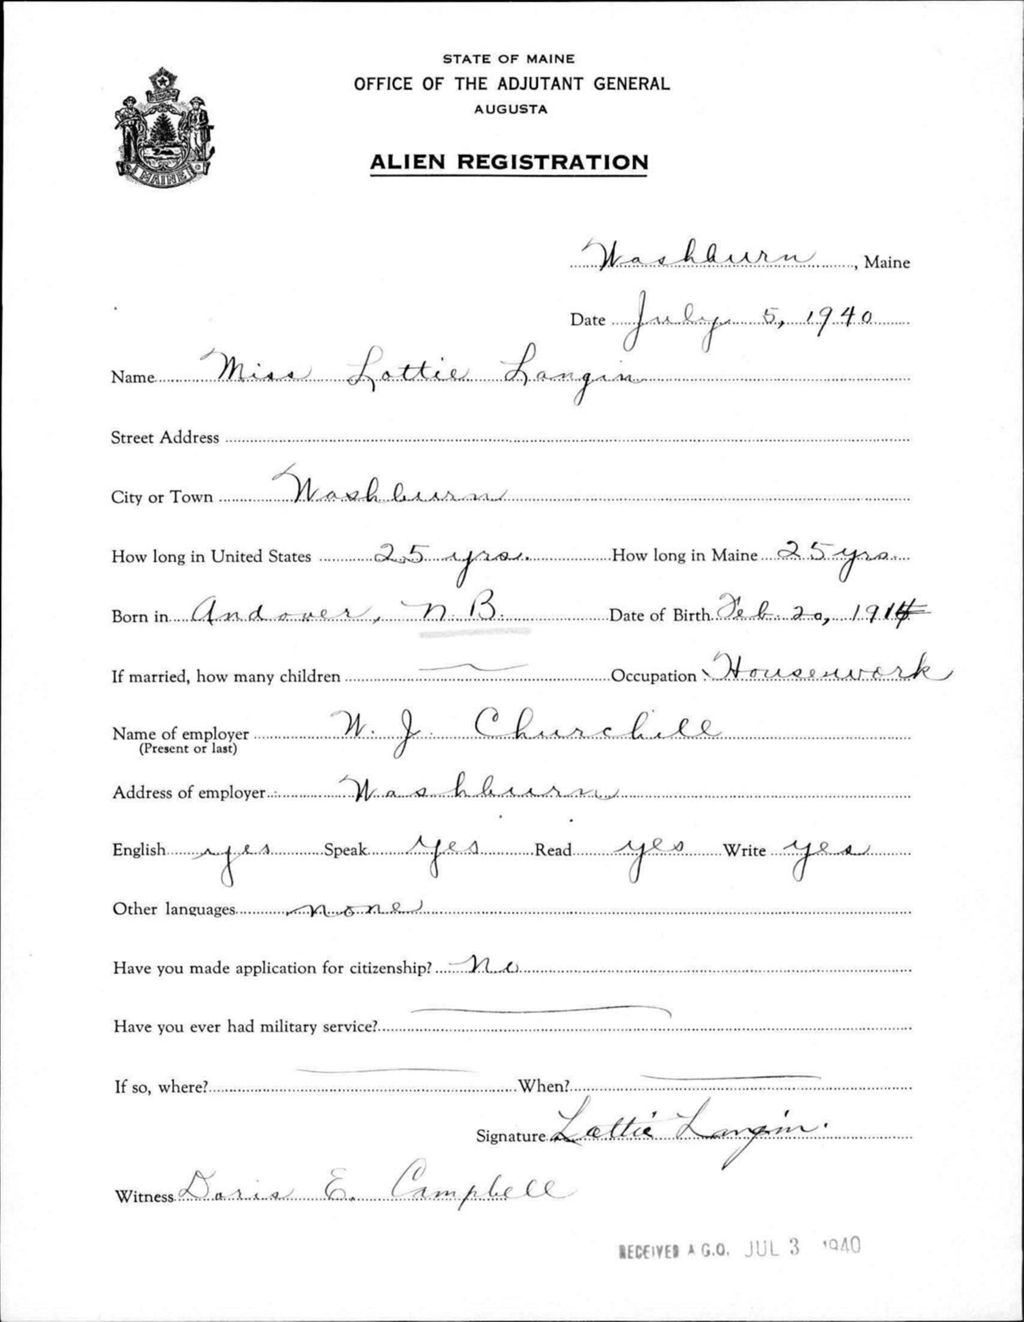 STATE OF MAINE
OFFICE OF THE ADJUTANT GENERAL
AUGUSTA
ALIEN REGISTRATION
MAINE
Washburn, Maine
Date July 5, 1940
Name Miss Lottie Langin
Street Address
City or Town Washburn
How long in United States 25 yrs. How long in Maine 25 yrs.
Born in Andover, N.B. Date of Birth Feb. 20, 1914
If married, how many children — Occupation Housework
Name of employer W. J. Churchill
(Present or last)
Address of employer Washburn
English yes Speak yes Read yes Write yes
Other languages none
Have you made application for citizenship? No
Have you ever had military service? —
If so, where? — When? —
Signature Lottie Langin.
Witness Doris E. Campbell
RECEIVED A.G.O. JUL 3 1940